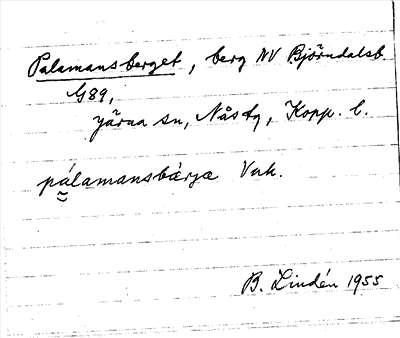 Palamansberget, berg NV Björndalsb.
G89,
Järna sn, Nås tg, Kopp. l.
pálamansbàrjæ Vak.
B. Lindén 1955